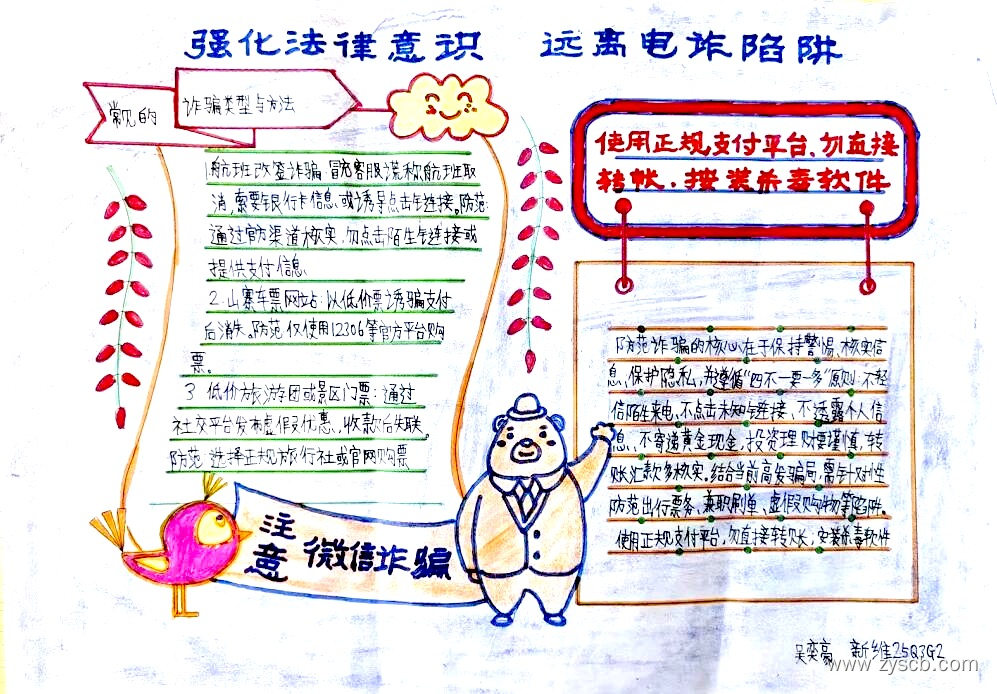 强化法律意识 远离电诈陷阱
常见的 诈骗类型与方法
1.航班改签诈骗 冒充客服谎称航班取
消,索要银行卡信息或诱导点击链接。防范:
通过官方渠道核实,勿点击陌生链接或
提供支付信息
2.山寨车票网站:以低价票诱骗支付
后消失。防范 仅使用12306等官方平台购
票。
3 低价旅游团或景区门票:通过
社交平台发布虚假优惠,收款后失联。
防范:选择正规旅行社或官网购票
注意 微信诈骗
使用正规支付平台、勿直接
转帐.按装杀毒软件
防范诈骗的核心在于保持警惕、核实信
息、保护隐私,并遵循“四不一要一多”原则:不轻
信陌生来电、不点击未知链接、不透露个人信
息、不寄递黄金现金,投资理财要谨慎,转
账汇款多核实。结合当前高发骗局,需针对性
防范出行票务、兼职刷单、虚假购物等陷阱。
使用正规支付平台,勿直接转账,安装杀毒软件
吴奕高 新维25Q3G2
www.zyscb.com